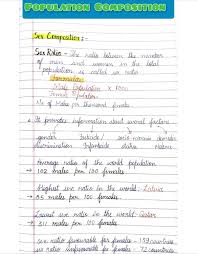 POPULATION COMPOSITION
Sex Composition :-
Sex Ratio - The ratio between the number
of men and women in the total
population is called sex ratio
Formulae
Male Population x 1000
Female Population
No. of Males per thousand female
It provides information about
gender
discrimination Infanticide status
Average ratio of the world population
→ 102 males per 100 females
Highest sex ratio in the world - Latvia
→ 85 males per 100 females
Lowest sex ratio in the world - Qatar
→ 311 males per 100 females
Sex ratio favourable for females - 139 countries
sex ratio unfavourable for females 72 countries